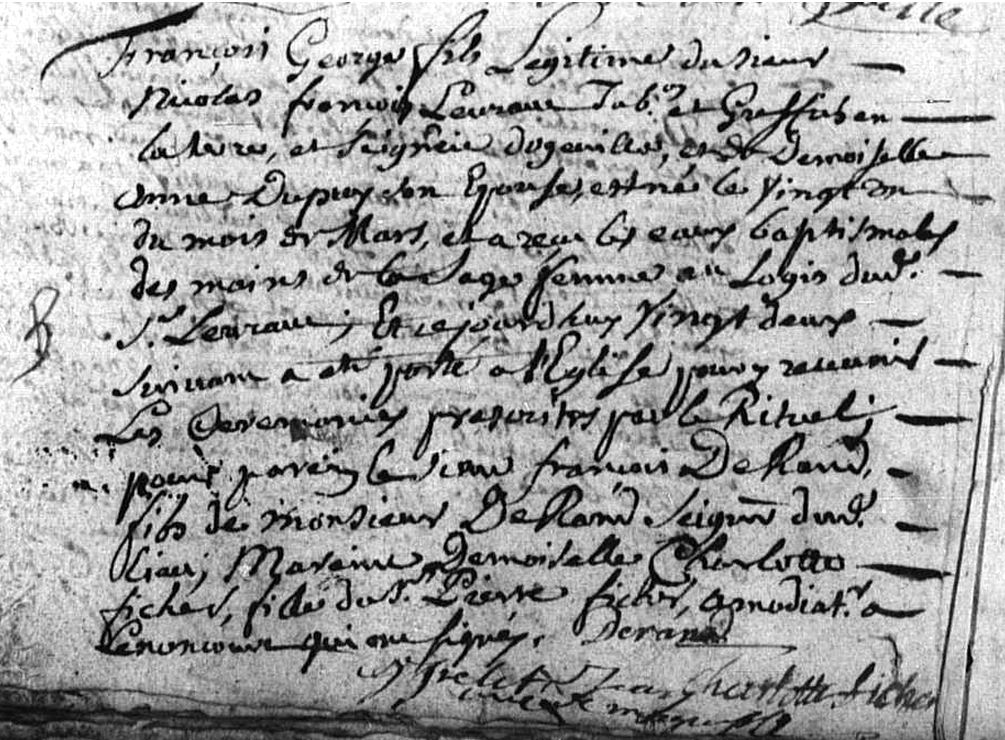 François George fils Legitime du sieur
Nicolas françois Levraux Tab.on et Greffier en
la terre, et Seigneie d'ogeviller, et de Demoiselle
anne Dupuy son Epouse, est né le Vingt un
du mois de Mars, et a reçu les eaux baptismales
des mains de la Sage femme au Logis dud.
Sr. Levraux; Et cejourdhuy Vingt deux
suivant a eté porté a l'Eglise pour y recevoir
Les Ceremonies prescrites par le Rituel;
pour parein le sieur françois DeRand,
fils de monsieur DeRand Seignr dud.
Lieu; Mareine Demoiselle Charlotte
fichet, fille du Sr. Pierre fichet, amodiatr. a
Lenoncour qui ont signés. Derand
Charlotte fichet